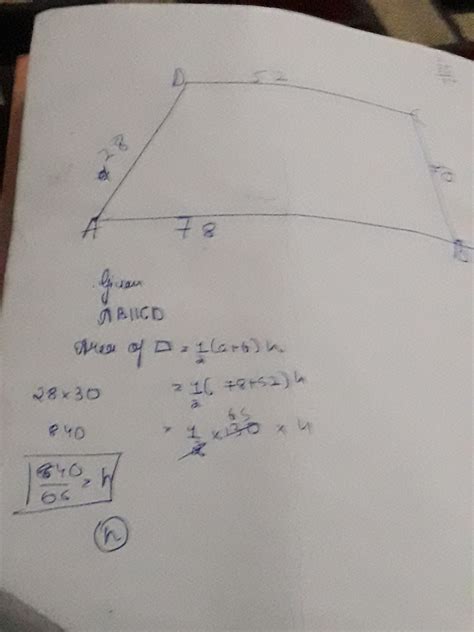 D 52 C
28
A 78 B
Given
AB||CD
Area of □ = 1/2 (a+b) h
28×30 = 1/2 ( 78+52) h
840 = 1/2 × 130 65 × h
840/65 = h
h